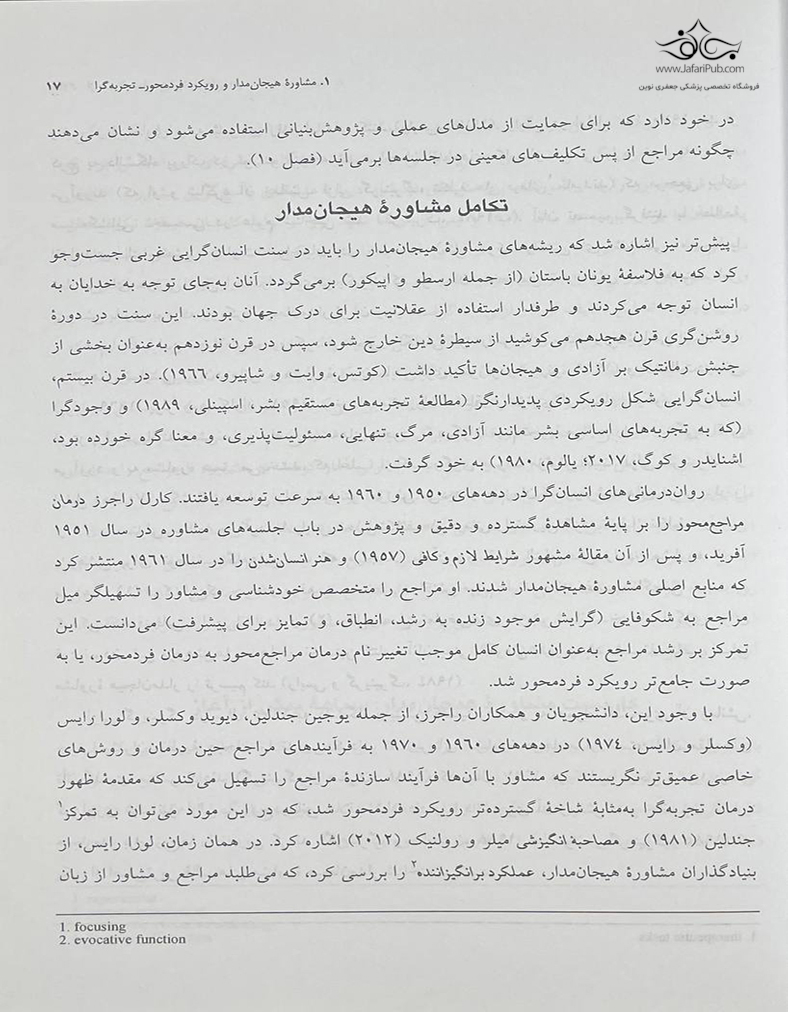 www.JafariPub.com
فروشگاه تخصصی پزشکی جعفری نوین
۱. مشاورهٔ هیجان‌مدار و رویکرد فردمحور-تجربه‌گرا ۱۷
در خود دارد که برای حمایت از مدل‌های عملی و پژوهش‌بنیانی استفاده می‌شود و نشان می‌دهند
چگونه مراجع از پس تکلیف‌های معینی در جلسه‌ها برمی‌آید (فصل ۱۰).
تکامل مشاورهٔ هیجان‌مدار
پیش‌تر نیز اشاره شد که ریشه‌های مشاورهٔ هیجان‌مدار را باید در سنت انسان‌گرایی غربی جست‌وجو
کرد که به فلاسفهٔ یونان باستان (از جمله ارسطو و اپیکور) برمی‌گردد. آنان به‌جای توجه به خدایان به
انسان توجه می‌کردند و طرفدار استفاده از عقلانیت برای درک جهان بودند. این سنت در دورهٔ
روشن‌گری قرن هجدهم می‌کوشید از سیطرهٔ دین خارج شود، سپس در قرن نوزدهم به‌عنوان بخشی از
جنبش رمانتیک بر آزادی و هیجان‌ها تأکید داشت (کوتس، وایت و شاپیرو، ۱۹۶۶). در قرن بیستم،
انسان‌گرایی شکل رویکردی پدیدارنگر (مطالعهٔ تجربه‌های مستقیم بشر، اسپینلی، ۱۹۸۹) و وجودگرا
(که به تجربه‌های اساسی بشر مانند آزادی، مرگ، تنهایی، مسئولیت‌پذیری، و معنا گره خورده بود،
اشنایدر و کوگ، ۲۰۱۷؛ یالوم، ۱۹۸۰) به خود گرفت.
روان‌درمانی‌های انسان‌گرا در دهه‌های ۱۹۵۰ و ۱۹۶۰ به سرعت توسعه یافتند. کارل راجرز درمان
مراجع‌محور را بر پایهٔ مشاهدهٔ گسترده و دقیق و پژوهش در باب جلسه‌های مشاوره در سال ۱۹۵۱
آفرید، و پس از آن مقالهٔ مشهور شرایط لازم و کافی (۱۹۵۷) و هنر انسان‌شدن را در سال ۱۹۶۱ منتشر کرد
که منابع اصلی مشاورهٔ هیجان‌مدار شدند. او مراجع را متخصص خودشناسی و مشاور را تسهیلگر میل
مراجع به شکوفایی (گرایش موجود زنده به رشد، انطباق، و تمایز برای پیشرفت) می‌دانست. این
تمرکز بر رشد مراجع به‌عنوان انسان کامل موجب تغییر نام درمان مراجع‌محور به درمان فردمحور، یا به
صورت جامع‌تر رویکرد فردمحور شد.
با وجود این، دانشجویان و همکاران راجرز، از جمله یوجین جندلین، دیوید وکسلر، و لورا رایس
(وکسلر و رایس، ۱۹۷۴) در دهه‌های ۱۹۶۰ و ۱۹۷۰ به فرآیندهای مراجع حین درمان و روش‌های
خاصی عمیق‌تر نگریستند که مشاور با آن‌ها فرآیند سازندهٔ مراجع را تسهیل می‌کند که مقدمهٔ ظهور
درمان تجربه‌گرا به‌مثابهٔ شاخهٔ گسترده‌تر رویکرد فردمحور شد، که در این مورد می‌توان به تمرکز۱
جندلین (۱۹۸۱) و مصاحبهٔ انگیزشی میلر و رولنیک (۲۰۱۲) اشاره کرد. در همان زمان، لورا رایس، از
بنیادگذاران مشاورهٔ هیجان‌مدار، عملکرد برانگیزاننده۲ را بررسی کرد، که می‌طلبد مراجع و مشاور از زبان
1. focusing
2. evocative function